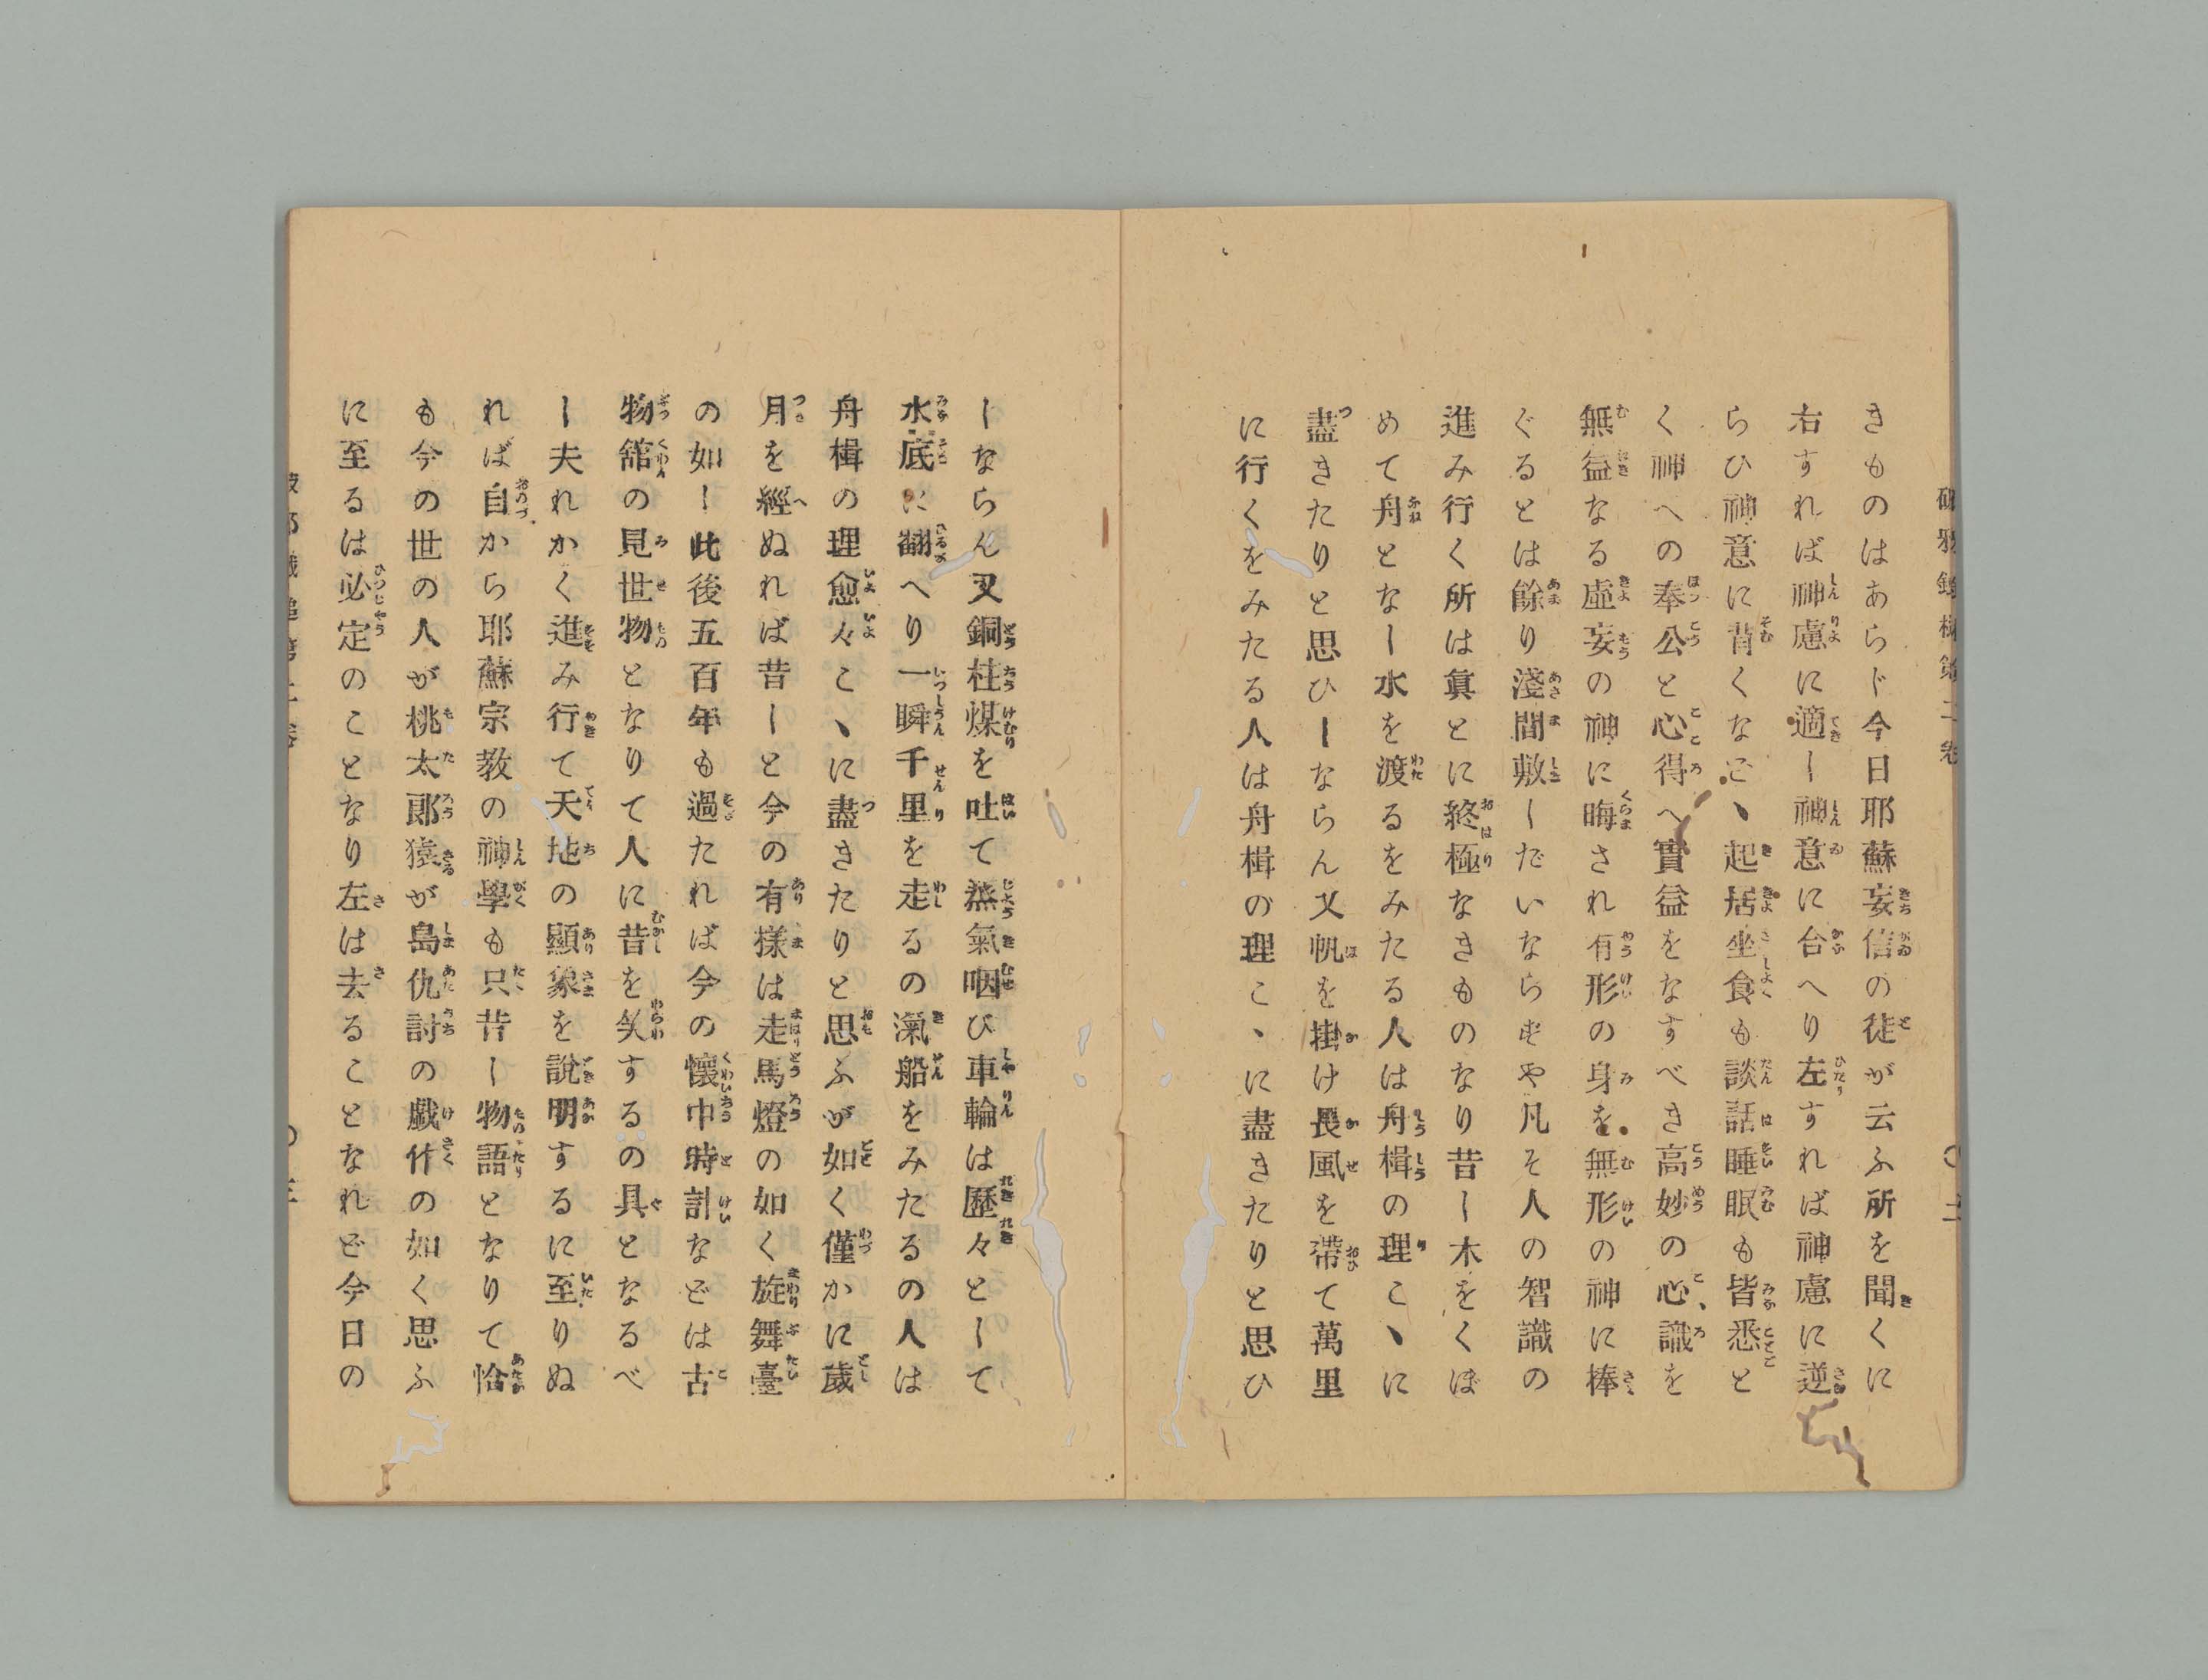 きものはあらド今日耶蘇妄信の徒が云ふ所を聞くに
右すれば神慮に適ー神意に合へり左すれば神慮に逆
らひ神意に背くなど、起居坐食も談話睡眠も皆悉と
く神への奉公と心得へ實益をなすべき高妙の心識を
無益なる虛妄の神に晦され有形の身を無形の神に棒
ぐるとは餘り淺間敷ーだいならずや凡そ人の智識の
進み行く所は眞とに終極なきものなり昔ー木をくぼ
めて舟となー水を渡るをみたる人は舟楫の理こヽに
盡きたりと思ひーならん又帆を掛け長風を帶て萬里
に行くをみたる人は舟楫の理こヽに盡きたりと思ひ
ーならん又銅柱煤を吐て烝氣咽び車輪は歷々とーて
水底に翻へり一瞬千里を走るの滊船をみたるの人は
舟楫の理愈々こヽに盡きたりと思ふが如く僅かに歲
月を經ぬれば昔ーと今の有樣は走馬燈の如く旋舞臺
の如ー此後五百年も過たれば今の懷中時計などは古
物舘の見世物となりて人に昔を笑するの具となるべ
ー夫れかく進み行て天地の顯象を說明するに至りぬ
れば自から耶蘇宗教の神學も只昔ー物語となりて恰
も今の世の人が桃太郞猿が島仇討の戯作の如く思ふ
に至るは必定のことなり左は去ることなれど今日の